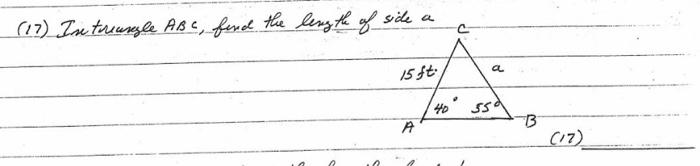 (17) In triangle ABC, find the length of side a
C
15 ft. a
40° 55°
A B
(17)